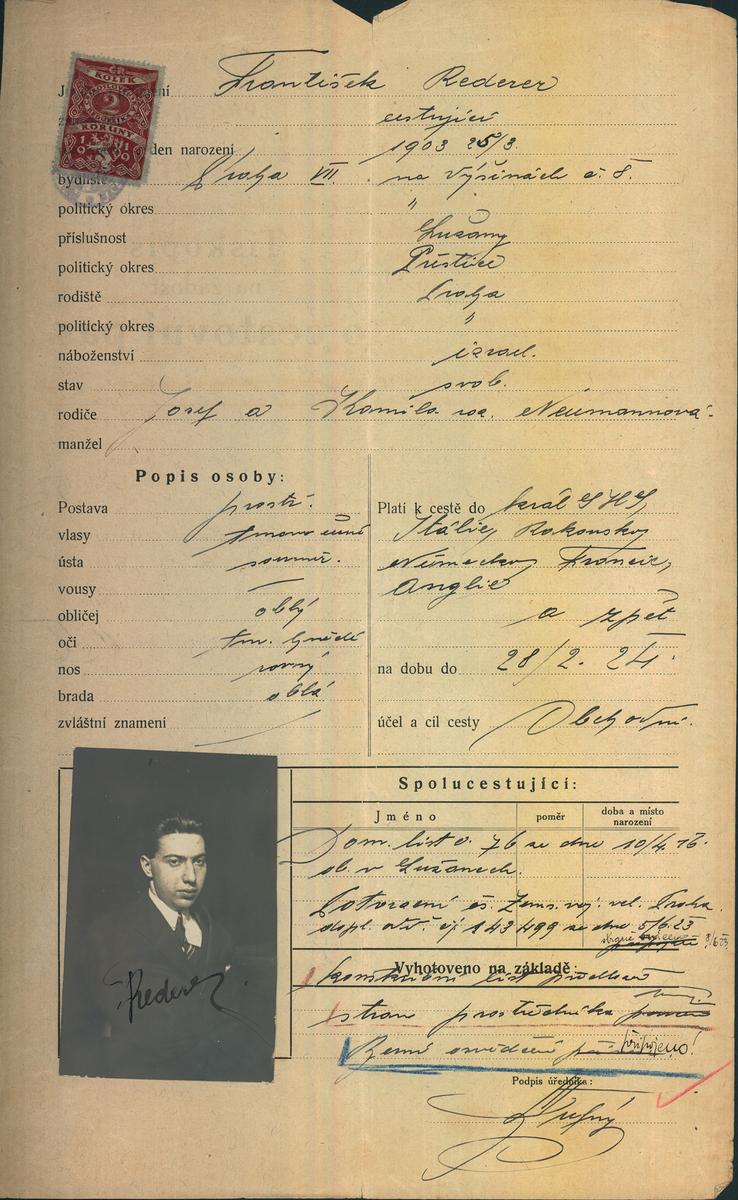 František Rederer
ČR
KOLEK
2
KORUNY
1919
cestující
den narození 1903 25/3.
bydliště Praha VII. na Výšinách č. 8.
politický okres "
příslušnost Lužany
politický okres Přeštice
rodiště Praha
politický okres "
náboženství israel.
stav svob.
rodiče Josef a Kamila roz. Neumannová
manžel
Popis osoby:
Postava prostř.
vlasy tmavo
ústa souměr.
vousy —
obličej oblý
oči tm. hnědé
nos rovný
brada oblá
zvláštní znamení
Platí k cestě do král SHS,
Itálie, Rakouska,
Německa, Francie,
Anglie
a zpět
na dobu do 28/2. 24.
účel a cíl cesty Obchodní.
Rederer
Spolucestující:
Jméno poměr doba a místo narození
Dom. list č. 76 ze dne 10/4. 16.
ob. v Lužanech.
Potvrzení čs. Zems. voj. vel. Praha.
dopl. odd. čj 143499 ze dne 5/6. 23
8/6 23
Vyhotoveno na základě:
list
stran prostředníka
Berní osvědčení připojeno!
Podpis úředníka: